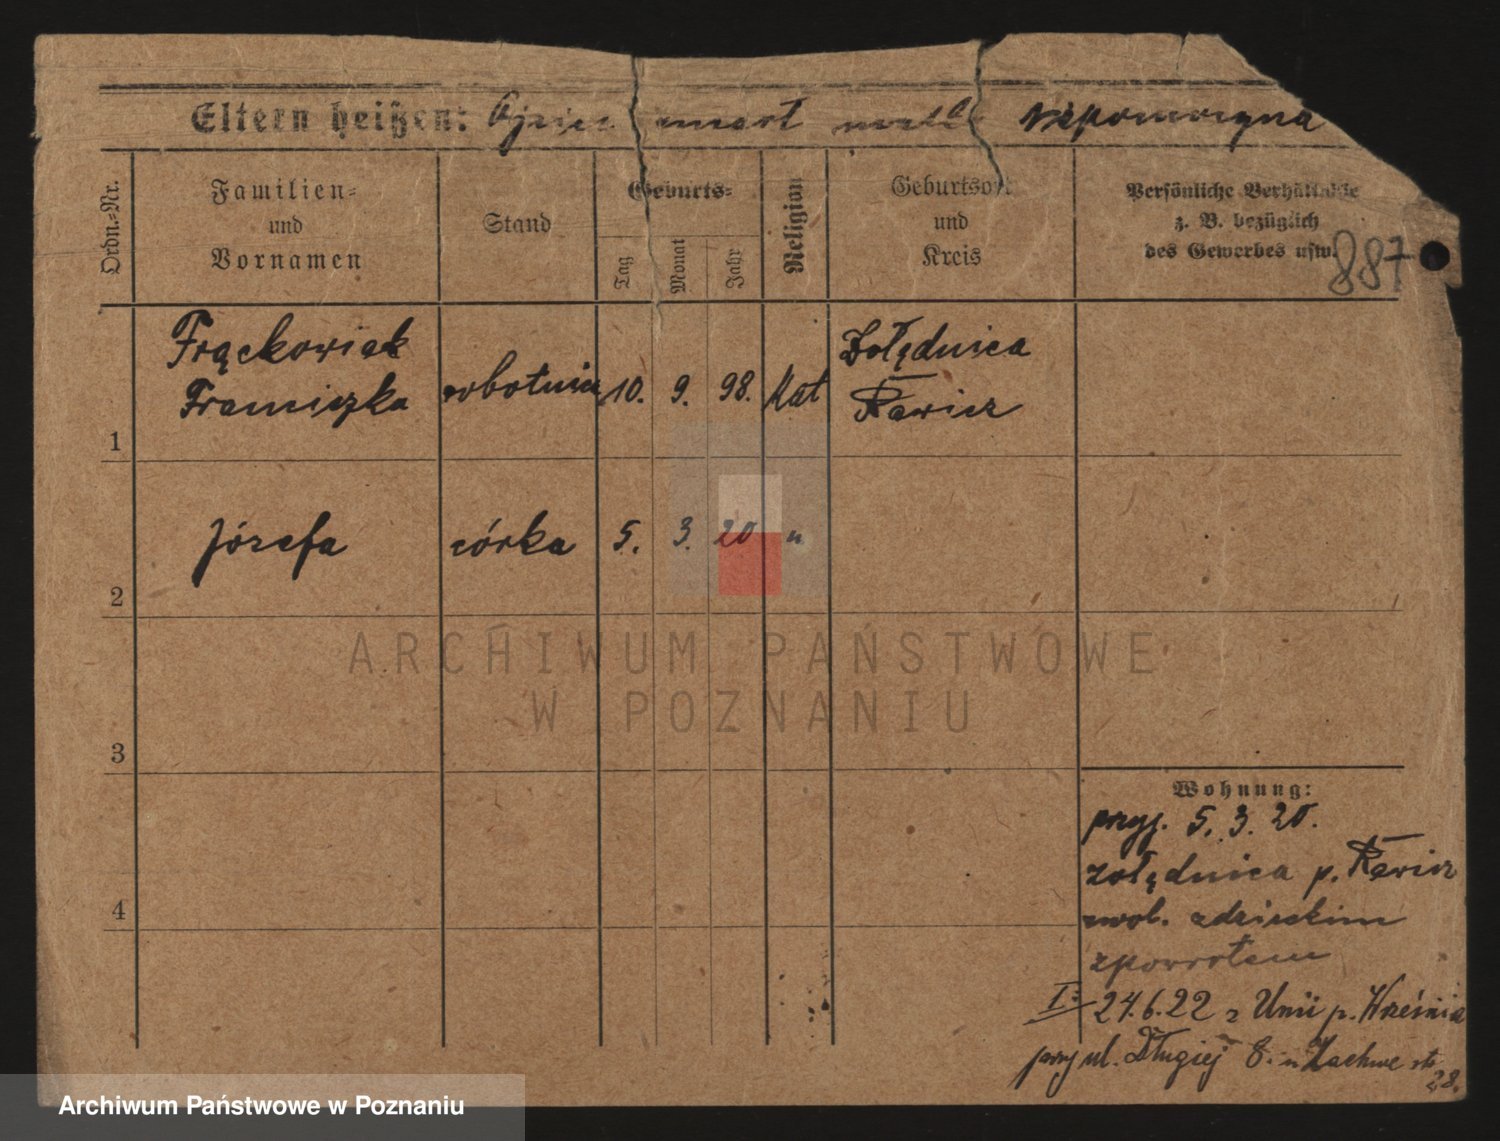 Eltern heißen: Ojciec umarł matka wspomożyna
Ordn.-Nr.
Familien-
und
Vornamen
Stand
Geburts-
Tag
Monat
Jahr
Religion
Geburtsort
und
Kreis
Persönliche Verhältnisse
z. B. bezüglich
des Gewerbes usw.
887
1
Frąckowiak
Franciszka
robotnica
10.
9.
98.
Kat
Zołędnica
Rawicz
2
Józefa
córka
5.
3.
20
"
ARCHIWUM PAŃSTWOWE
W POZNANIU
3
4
Wohnung:
przyj. 5. 3. 20.
zołędnica p. Rawicz
z dzieckim
zpowrotem
I: 24.6.22 z Unii p. Września
przy ul. Długiej 8. u
28.
Archiwum Państwowe w Poznaniu